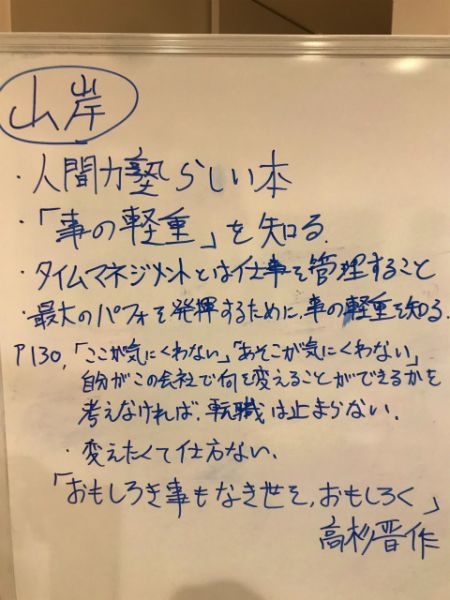 山岸
・人間力塾らしい本
・「事の軽重」を知る.
・タイムマネジメントとは仕事を管理すること
・最大のパフォを発揮するために、事の軽重を知る.
P130,「ここが気にくわない」「あそこが気にくわない」
自分がこの会社で何を変えることができるかを
考えなければ、転職は止まらない.
・変えたくて仕方ない.
「おもしろき事もなき世を,おもしろく」
高杉晋作